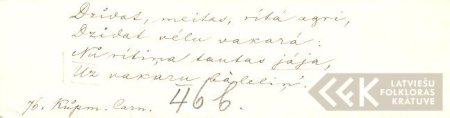 Dzīdat, meitas, rītā agri,
Dzīdat vēlu vakarā:
Nu rītima tautas jāja,
Uz vakaru bāleliņ.
76. Kūpm. Carn. 466.
LATVIEŠU
FOLKLORAS
KRĀTUVE